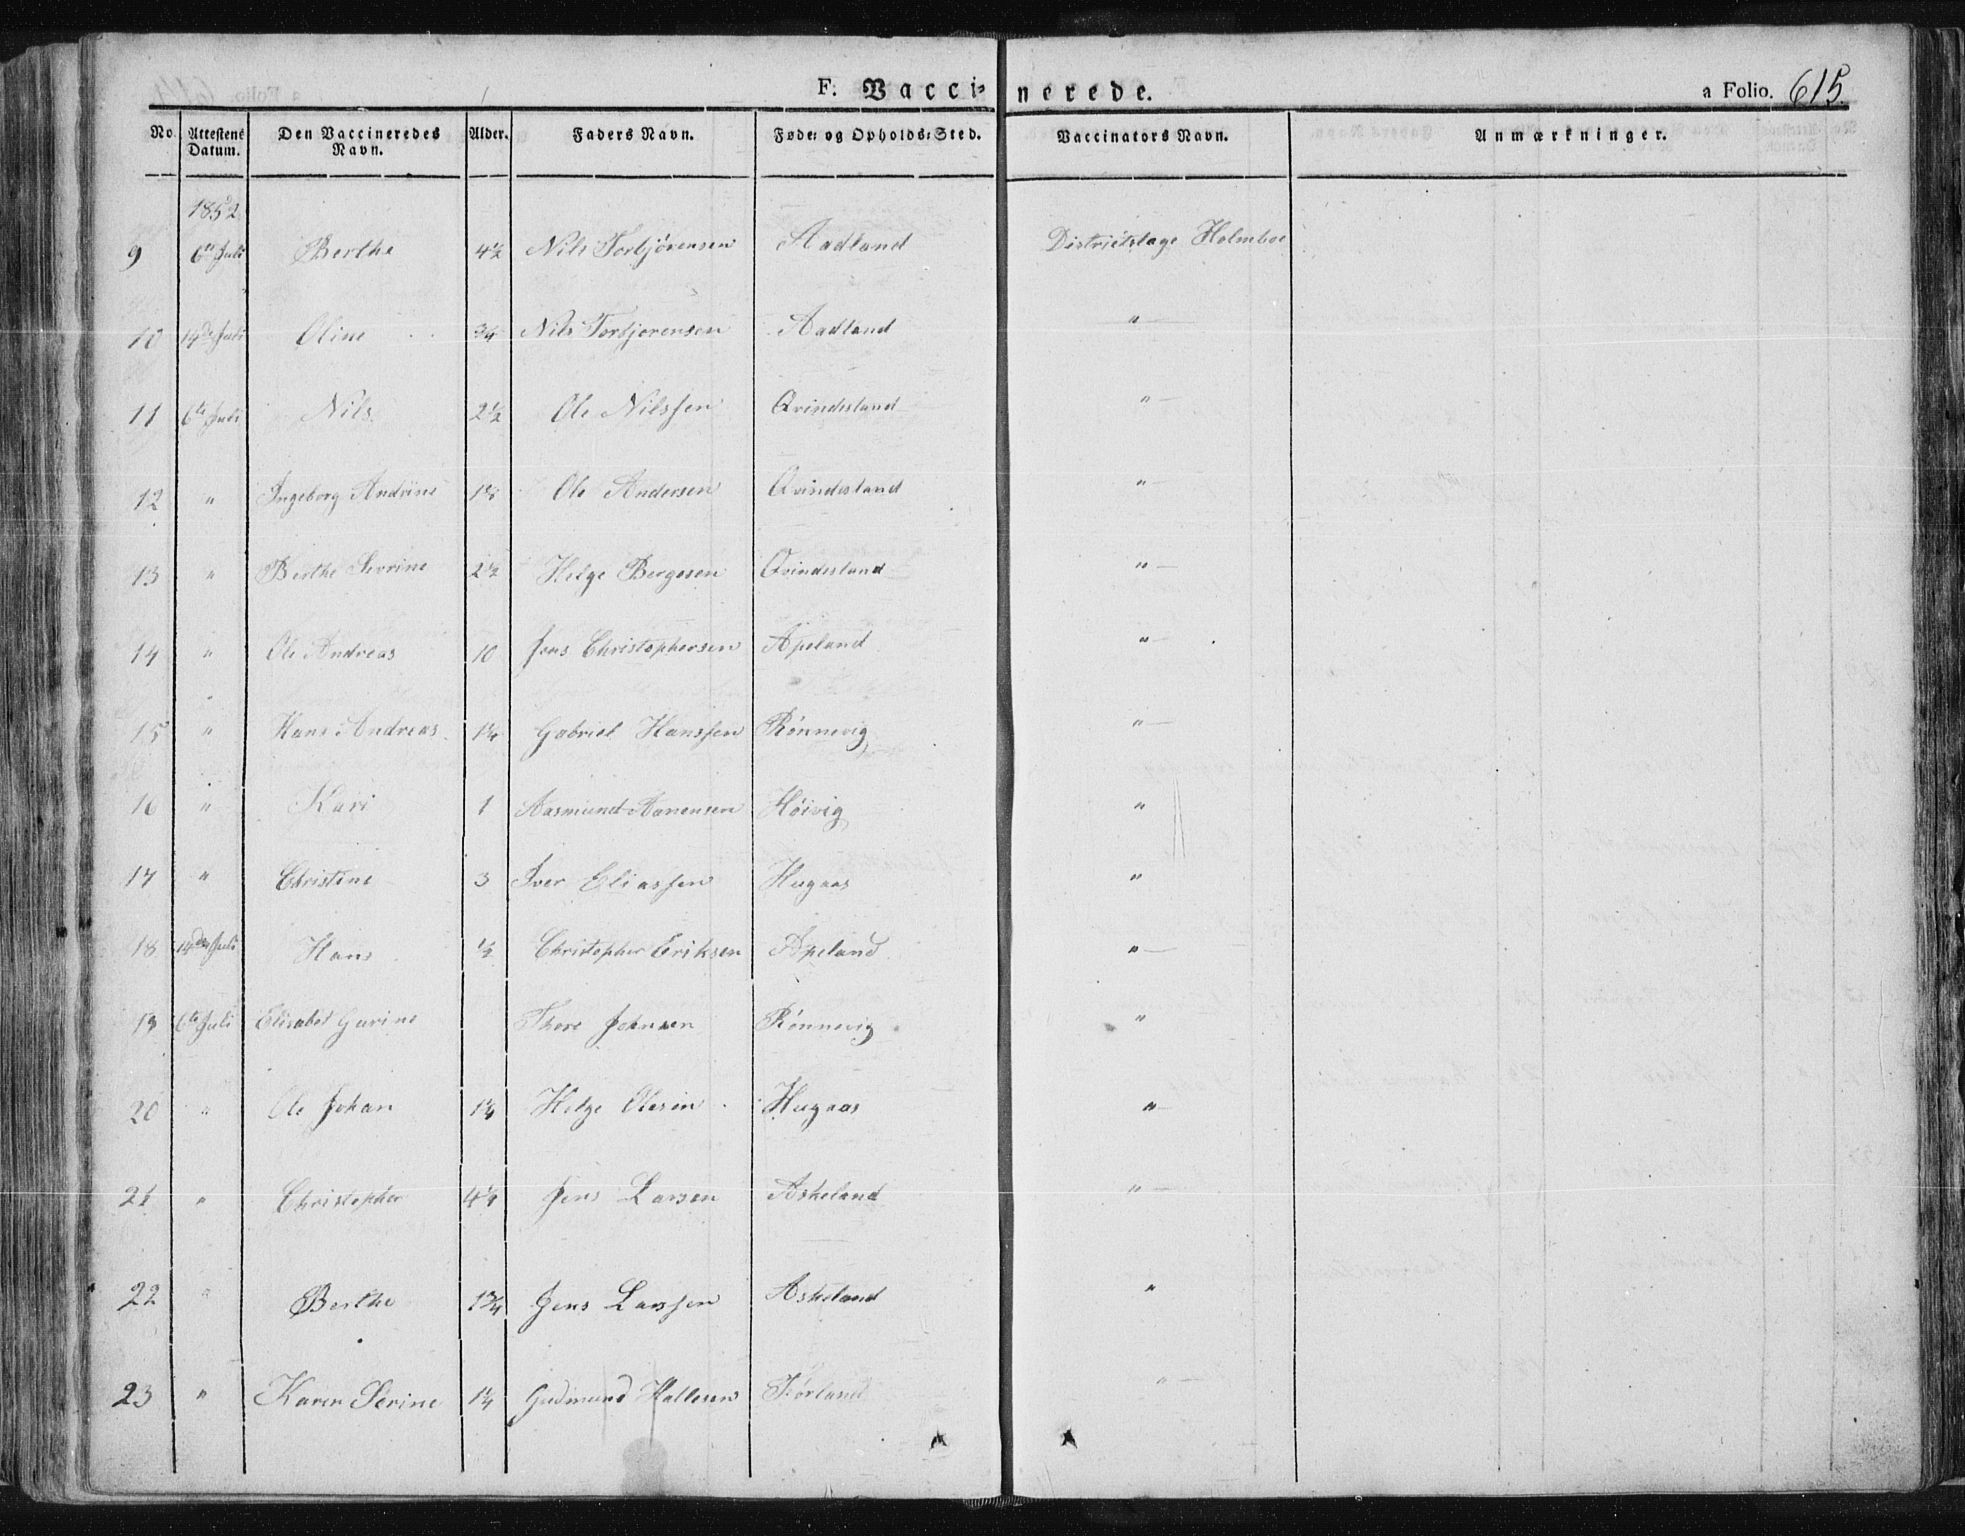 F. Vaccinerede. a Folio. 615.
No. Attestens Datum. Den Vaccineredes Navn. Alder. Faders Navn. Føde- og Opholds-Sted. Vaccinators Navn. Anmærkninger.
1852
9 6te Juli Berthe 4½ Nils Torbjörensen Aadland Districtslæge Holmboe
10 14de Juli Oline ¾ Nils Torbjorensen Aadland " —
11 6te Juli Nils 2½ Ole Nilssen Qvindesland " —
12 " Ingeborg Andrine Ole Andersen Qvindesland " —
13 " Berthe Severine 2½ Helge Bergesen Qvindesland " —
14 " Ole Andreas 10 Jens Christophersen Apeland " —
15 " Hans Andreas 1¼ Gabriel Hanssen Rönnevig " —
16 " Kari 1 Aasmund Aanensen Höivig "
17 " Christine 3 Iver Eliassen Hugaas "
18 14de Juli Hans ½ Christopher Eriksen Apeland " —
19 6te Juli Elisabet Gurine Thore Johnsen Rönnevig "
20 " Ole Johan Helge Olesen Hugaas " —
21 " Christopher 4¼ Jens Larsen Askeland " —
22 " Berthe 1¾ Jens Larssen Askeland "
23 " Karen Serine 1¼ Gudmund Hallesen Förland " —